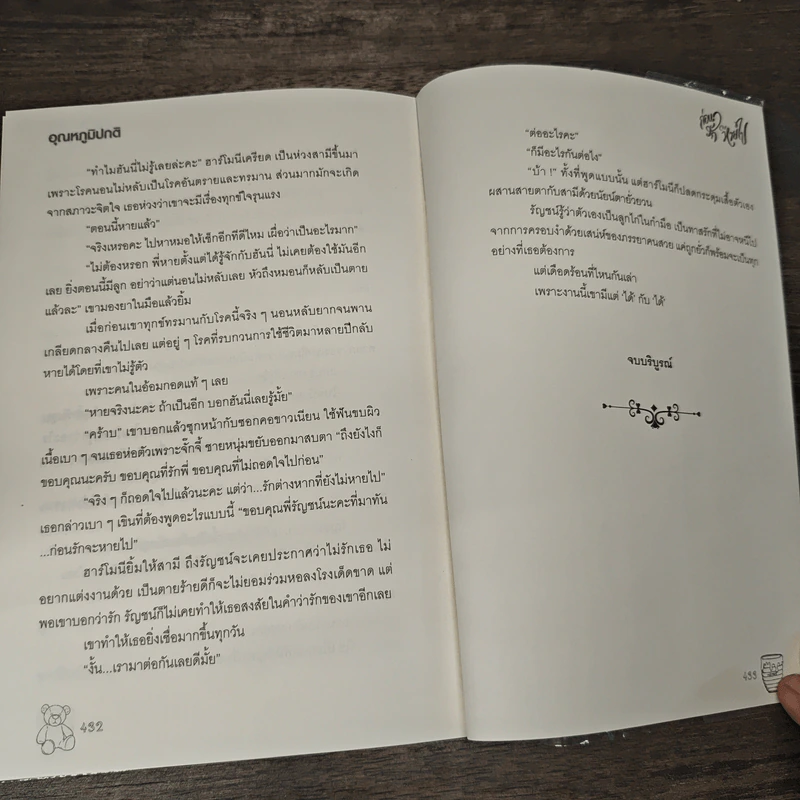 อุณหภูมิปกติ
“ทำไมฮันนี่ไม่รู้เลยล่ะคะ” ฮาร์โมนีเครียด เป็นห่วงสามีขึ้นมา
เพราะโรคนอนไม่หลับเป็นโรคอันตรายและทรมาน ส่วนมากมักจะเกิด
จากสภาวะจิตใจ เธอห่วงว่าเขาจะมีเรื่องทุกข์ใจรุนแรง
“ตอนนี้หายแล้ว”
“จริงเหรอคะ ไปหาหมอให้เช็กอีกทีดีไหม เผื่อว่าเป็นอะไรมาก”
“ไม่ต้องหรอก พี่หายตั้งแต่ได้รู้จักกับฮันนี่ ไม่เคยต้องใช้มันอีก
เลย ยิ่งตอนนี้มีลูก อย่าว่าแต่นอนไม่หลับเลย หัวถึงหมอนก็หลับเป็นตาย
แล้วละ” เขามองยาในมือแล้วยิ้ม
เมื่อก่อนเขาทุกข์ทรมานกับโรคนี้จริง ๆ นอนหลับยากจนพาน
เกลียดกลางคืนไปเลย แต่อยู่ ๆ โรคที่รบกวนการใช้ชีวิตมาหลายปีกลับ
หายได้โดยที่เขาไม่รู้ตัว
เพราะคนในอ้อมกอดแท้ ๆ เลย
“หายจริงนะคะ ถ้าเป็นอีก บอกฮันนี่เลยรู้มั้ย”
“คร้าบ” เขาบอกแล้วซุกหน้ากับซอกคอขาวเนียน ใช้ฟันขบผิว
เนื้อเบา ๆ จนเธอห่อตัวเพราะจั๊กจี้ ชายหนุ่มขยับออกมาสบตา “ถึงยังไงก็
ขอบคุณนะครับ ขอบคุณที่รักพี่ ขอบคุณที่ไม่ถอดใจไปก่อน”
“จริง ๆ ก็ถอดใจไปแล้วนะคะ แต่ว่า...รักต่างหากที่ยังไม่หายไป”
เธอกล่าวเบา ๆ เขินที่ต้องพูดอะไรแบบนี้ “ขอบคุณพี่รัญชน์นะคะที่มาทัน
...ก่อนรักจะหายไป”
ฮาร์โมนียิ้มให้สามี ถึงรัญชน์จะเคยประกาศว่าไม่รักเธอ ไม่
อยากแต่งงานด้วย เป็นตายร้ายดีก็จะไม่ยอมร่วมหอลงโรงเด็ดขาด แต่
พอเขาบอกว่ารัก รัญชน์ก็ไม่เคยทำให้เธอสงสัยในคำว่ารักของเขาอีกเลย
เขาทำให้เธอยิ่งเชื่อมากขึ้นทุกวัน
“งั้น...เรามาต่อกันเลยดีมั้ย”
432
ก่อน
รัก
จะ
หายไป
“ต่ออะไรคะ”
“ก็มีอะไรกันต่อไง”
“บ้า !” ทั้งที่พูดแบบนั้น แต่ฮาร์โมนีก็ปลดกระดุมเสื้อตัวเอง
ผสานสายตากับสามีด้วยนัยน์ตายั่วยวน
รัญชน์รู้ว่าตัวเองเป็นลูกไก่ในกำมือ เป็นทาสรักที่ไม่อาจหนีไป
จากการครอบงำด้วยเสน่ห์ของภรรยาคนสวย แค่ถูกยั่วก็พร้อมจะเป็นทุก
อย่างที่เธอต้องการ
แต่เดือดร้อนที่ไหนกันเล่า
เพราะงานนี้เขามีแต่ ‘ได้’ กับ ‘ได้’
จบบริบูรณ์
433